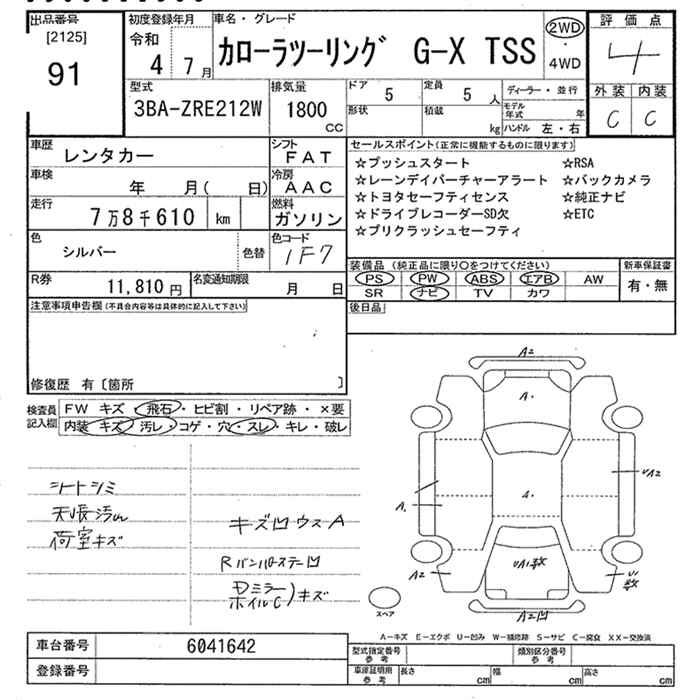 出品番号
[2125]
91
初度登録年月
令和
4 7月
車名・グレード
カローラツーリング G-X TSS
2WD
・
4WD
評価点
4
外装 内装
C C
型式
3BA-ZRE212W
排気量
1800
CC
ドア
5
定員
5 人
形状
積載
kg
ディーラー・並行
モデル年式 年
ハンドル 左・右
車歴
レンタカー
シフト
FAT
車検
年 月( 日)
冷房
AAC
走行
7万8千610 km
燃料
ガソリン
色
シルバー
色替
色コード
1F7
R券
11,810 円
名変通知期限
月 日
セールスポイント(正常に機能するものに限ります)
☆プッシュスタート ☆RSA
☆レーンデイパーチャーアラート ☆バックカメラ
☆トヨタセーフティセンス ☆純正ナビ
☆ドライブレコーダーSD欠 ☆ETC
☆プリクラッシュセーフティ
装備品(純正品に限り○をつけてください)
PS PW ABS エアB AW
SR ナビ TV カワ
新車保証書
有・無
後日品
注意事項申告欄(不具合内容等は具体的に記入して下さい)
修復歴 有〔箇所 〕
検査員
記入欄
FW キズ・飛石・ヒビ割・リペア跡・×要
内装 キズ・汚レ・コゲ・穴・スレ・キレ・破レ
シートシミ
天張汚れ
荷室キズ
キズ凹ウスA
Rバンパーステー凹
Dミラー
ホイルC)キズ
A2
A・
A・
A・
UA2
UA1数
A2
U1
数
A2凹
スペア
A-キズ E-エクボ U-凹み W-補修跡 S-サビ C-腐食 XX-交換済
車台番号
6041642
登録番号
型式指定番号
参考
類別区分番号
参考
車庫証明用
参考
長さ cm
幅 cm
高さ cm